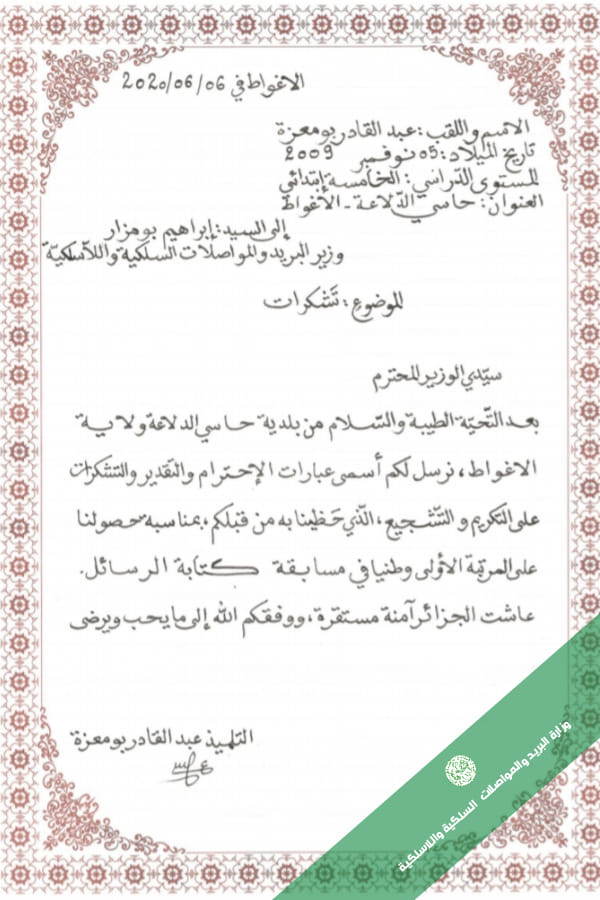 الاغواط في 2020/06/06
الاسم واللقب: عبد القادر بومعزة
تاريخ الميلاد: 05 نوفمبر 2009
المستوى الدراسي: الخامسة إبتدائي
العنوان: حاسي الدّلاعة - الأغواط
إلى السيد: إبراهيم بومزار
وزير البريد والمواصلات السلكية واللاسلكيّة
الموضوع: تَشكرات
سيّدي الوزير المحترم
بعد التّحيّة الطيبة والسّلام من بلدية حاسي الدلاعة ولاية
الاغواط، نرسل لكم أسمى عبارات الإحترام والتقدير والتشكرات
على التكريم والتّشجيع، الّذي حَظينا به من قبلكم، بمناسبة حصولنا
على المرتبة الأولى وطنيا في مسابقة كتابة الرسائل.
عاشت الجزائر آمنة مستقرة، ووفقكم الله إلى ما يحب ويرضى
التلميذ عبد القادر بومعزة
وزارة البريد والمواصلات السلكية واللاسلكية